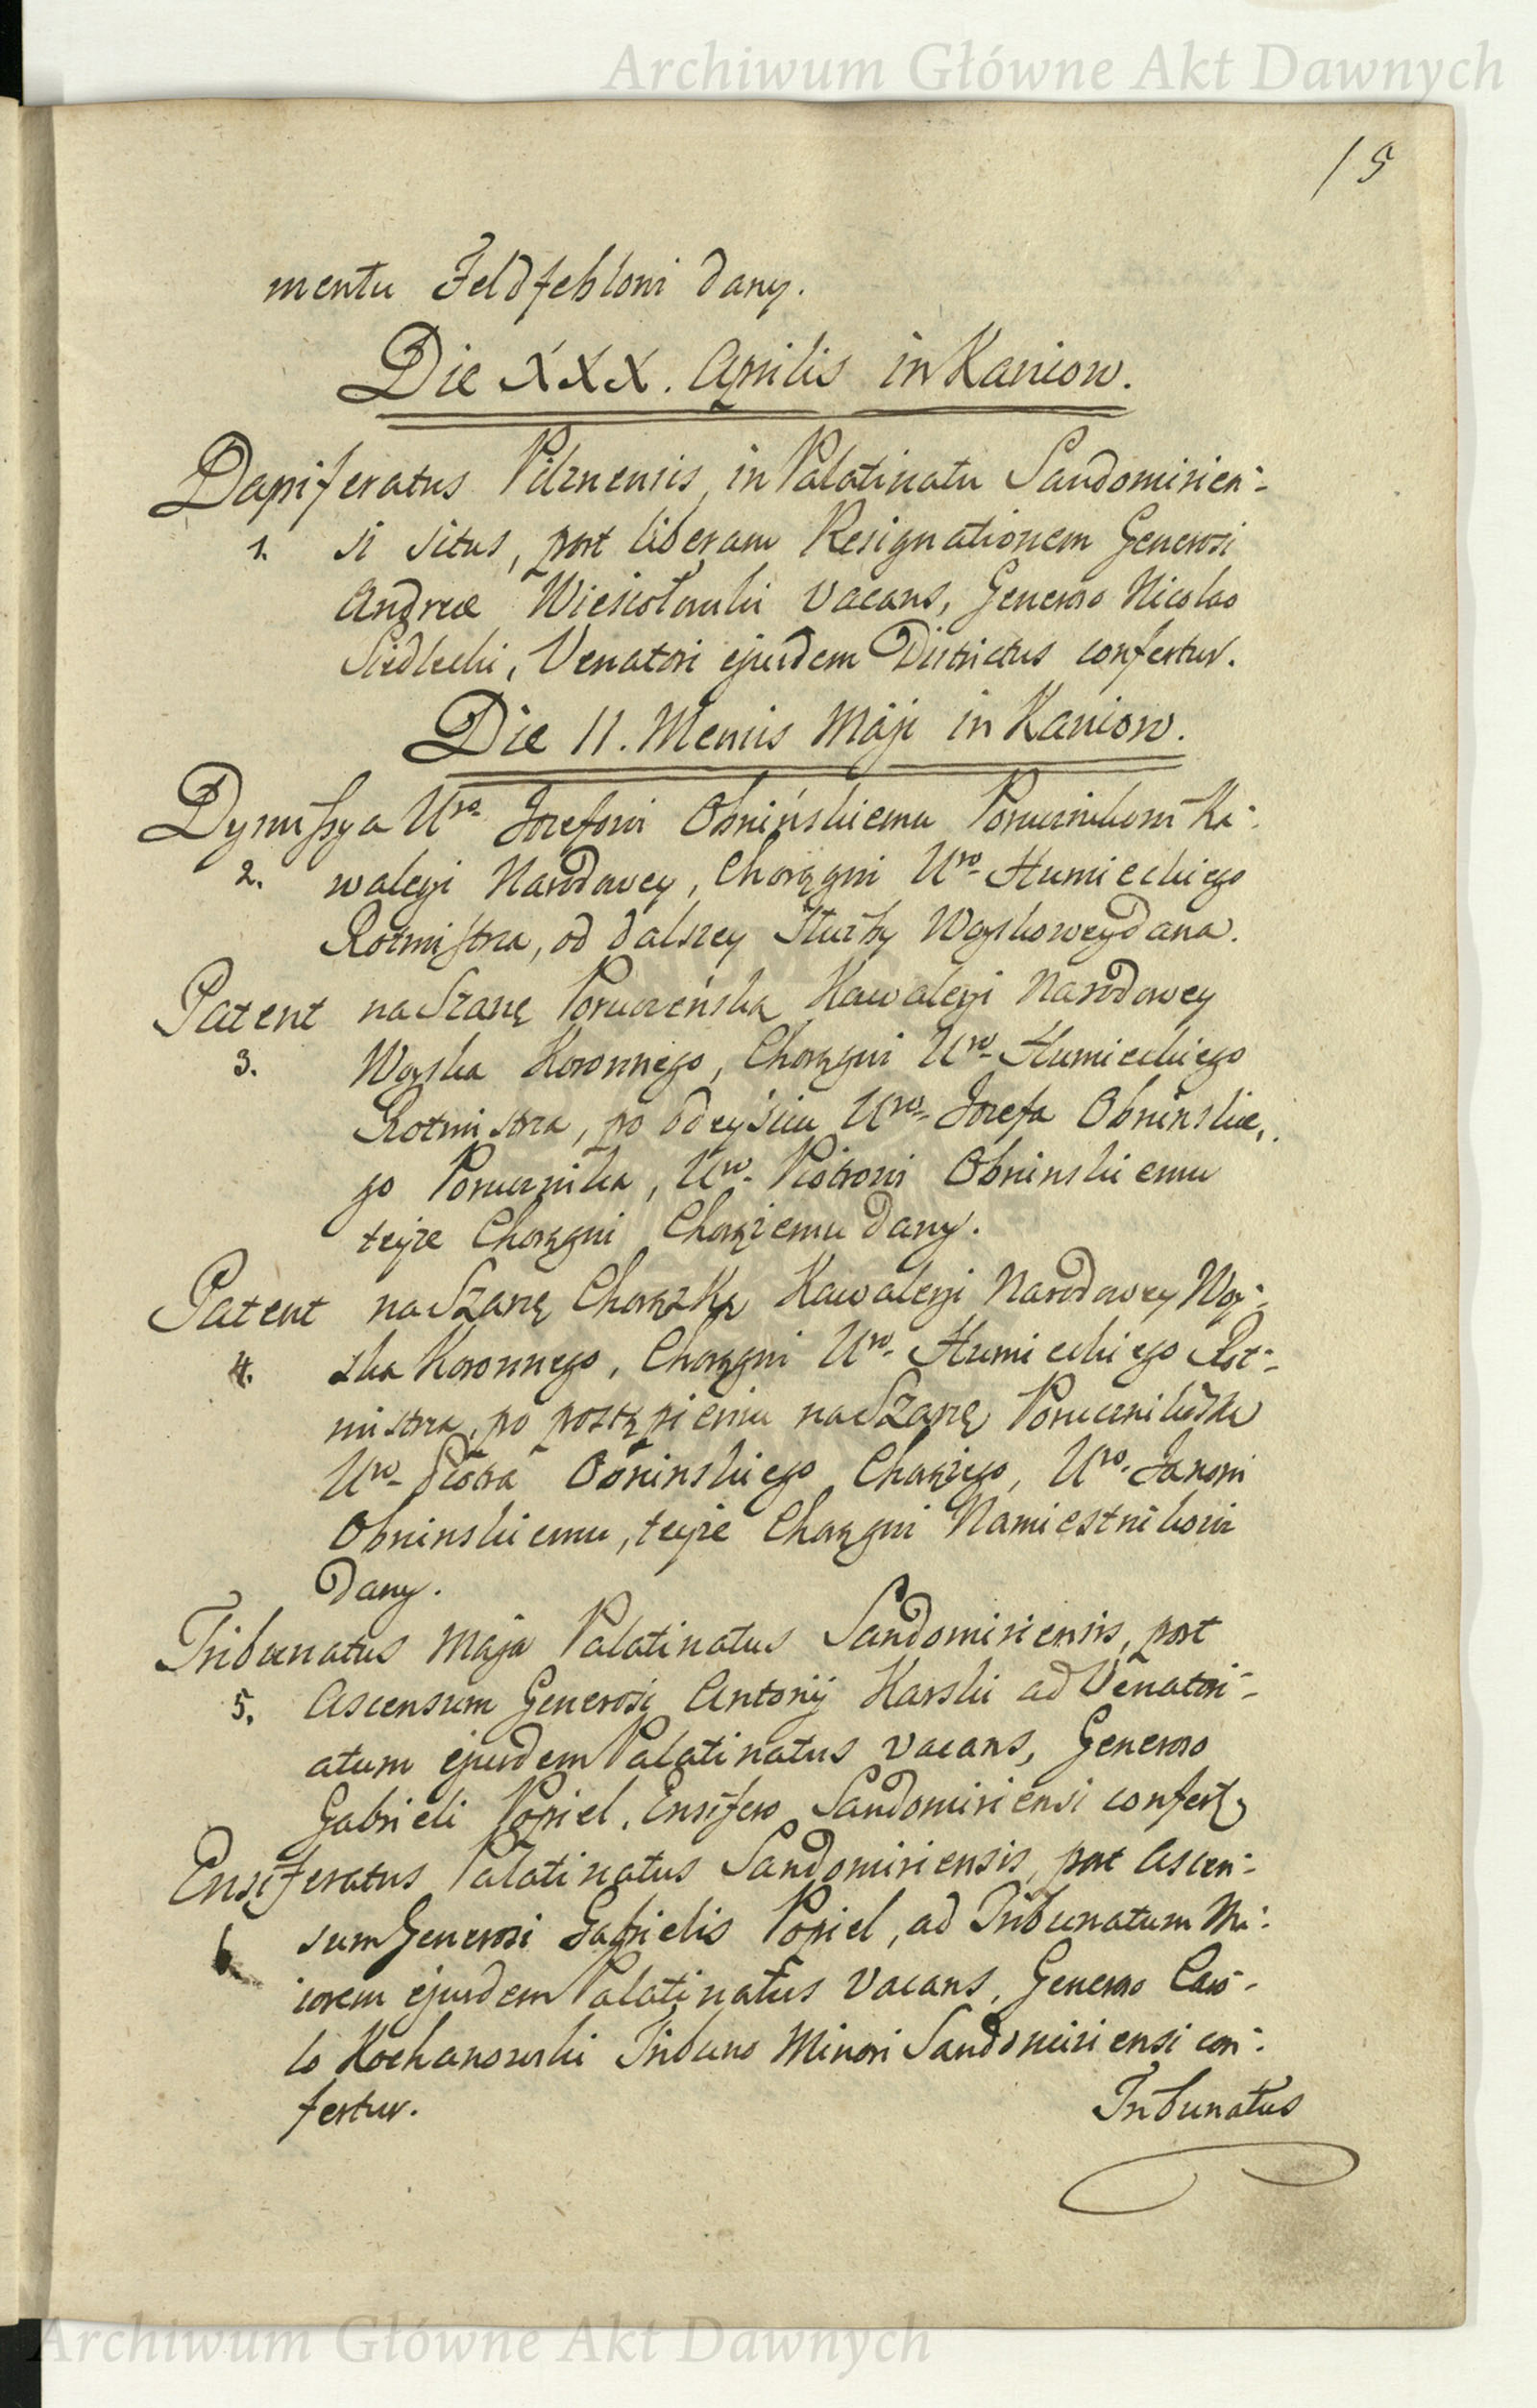 Archiwum Główne Akt Dawnych
15
mentu Feldfeblowi dany.
Die XXX. Aprilis in Kaniow.
Dapiferatus Pilznensis, in Palatinatu Sandomirien-
1. si situs, post liberam Resignationem Generosi
Andreæ Wiesiołowski vacans, Generoso Nicolao
Siedlecki, Venatori ejusdem Districtus confertur.
Die 11. Mensis Maji in Kaniow.
Dymissya Uro Jozefowi Obnińskiemu Porucznikowi Ka-
2. waleryi Narodowey, Chorągwi Uro Humieckiego
Rotmistrza, od dalszey służby Woyskowey dana.
Patent na Szarżę Poruczeńską Kawaleryi Narodowey
3. Woyska Koronnego, Chorągwi Uro Humieckiego
Rotmistrza, po odeyściu Uro Jozefa Obninskie-
go Porucznika, Uro Piotrowi Obninskiemu
teyże Chorągwi Chorążemu dany.
Patent na Szarżę Chorązką Kawaleryi Narodowey Woy-
4. ska Koronnego, Chorągwi Uro Humieckiego Rot-
mistrza, po postąpieniu na Szarżę Poruczniköską
Uro Piotra Obninskiego Chorążego, Uro Janowi
Obninskiemu, teyże Chorągwi Namiestnikowi
dany.
Tribunatus Major Palatinatus Sandomiriensis, post
5. Ascensum Generosi Antonij Karski ad Venatori-
atum ejusdem Palatinatus vacans, Generoso
Gabrieli Popiel, Ensifero Sandomiriensi confert
Ensiferatus Palatinatus Sandomiriensis, post Ascen-
6 sum Generosi Gabrielis Popiel, ad Tribunatum Ma-
iorem ejusdem Palatinatus vacans, Generoso Caro-
lo Kochanowski Tribuno Minori Sandomiriensi con-
fertur.
Tribunatus
Archiwum Główne Akt Dawnych